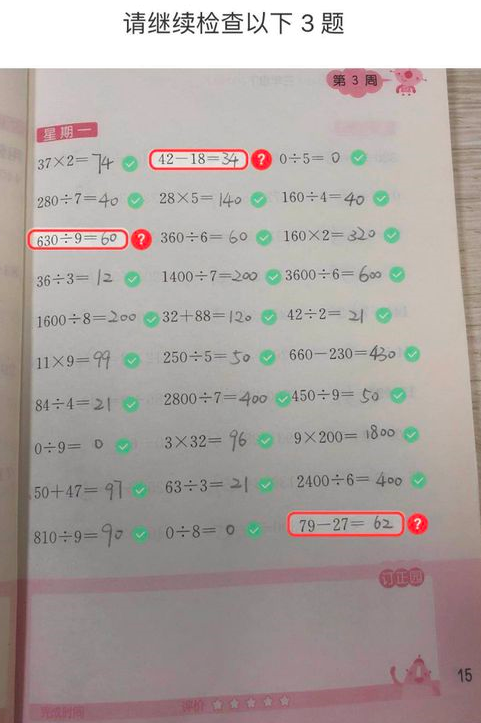 请继续检查以下 3 题
第 3 周
星期一
37×2=74 42-18=34 ? 0÷5=0
280÷7=40 28×5=140 160÷4=40
630÷9=60 ? 360÷6=60 160×2=320
36÷3=12 1400÷7=200 3600÷6=600
1600÷8=200 32+88=120 42÷2=21
11×9=99 250÷5=50 660-230=430
84÷4=21 2800÷7=400 450÷9=50
0÷9=0 3×32=96 9×200=1800
50+47=97 63÷3=21 2400÷6=400
810÷9=90 0÷8=0 79-27=62 ?
订正园
15
完成时间 评价